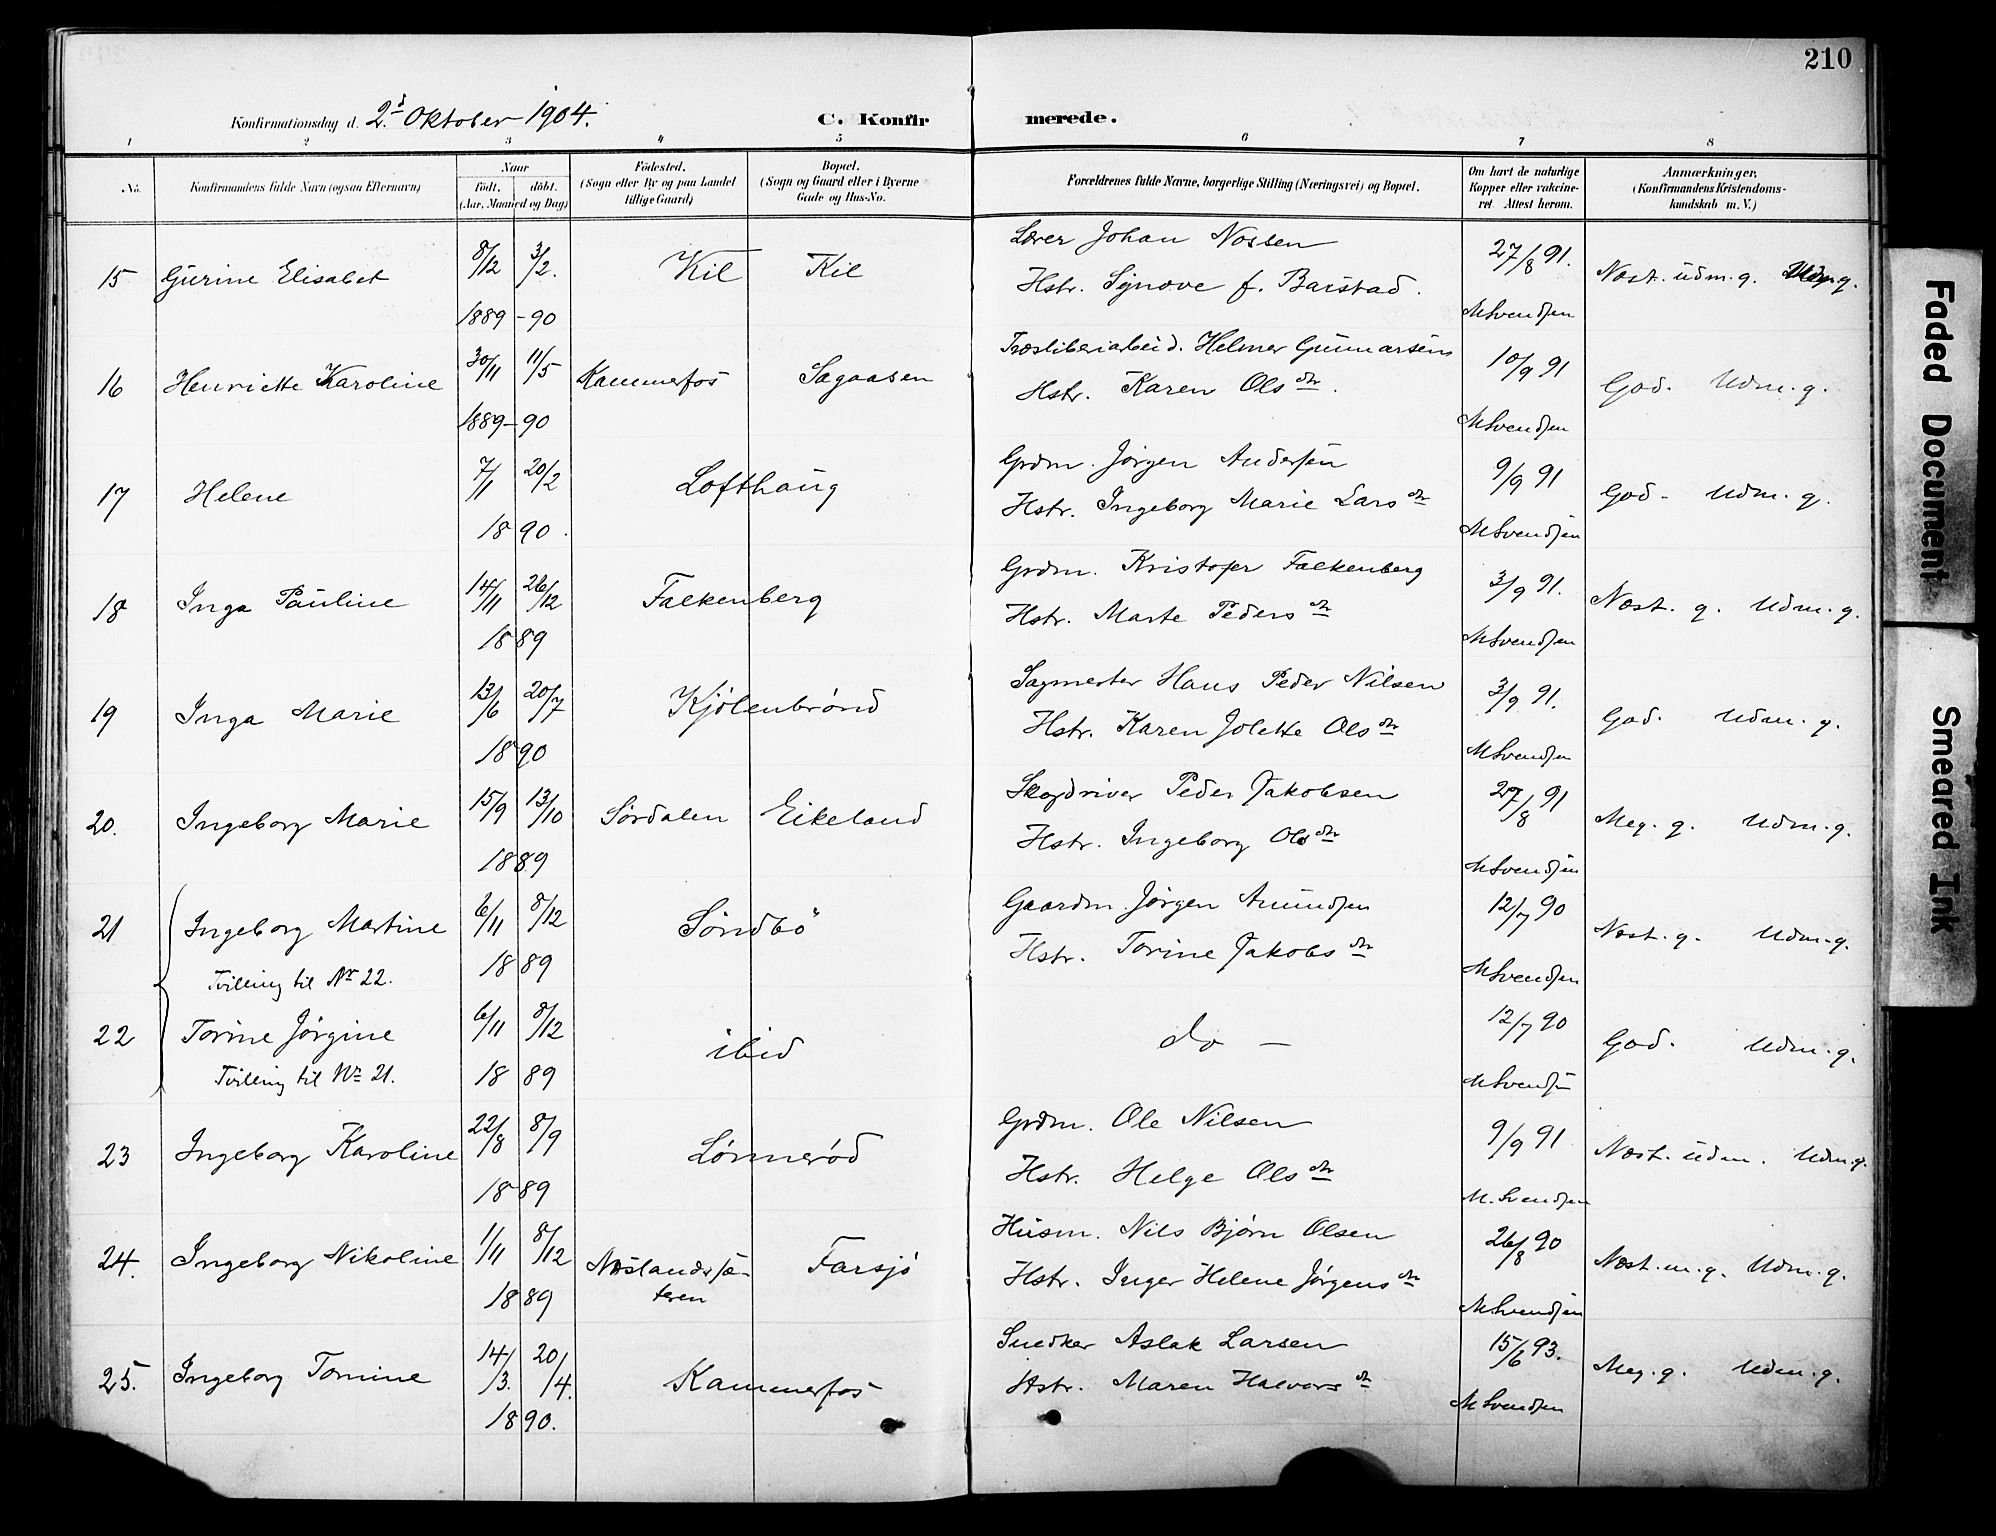 210
Konfirmationsdag d. 2d Oktober 1904.
C. Konfirmerede.
1 2 3 4 5 6 7 8
No. Konfirmandens fulde Navn (ogsaa Efternavn) Naar født. døbt. (Aar, Maaned og Dag) Fødested. (Sogn eller By og paa Landet tillige Gaard) Bopæl. (Sogn og Gaard eller i Byerne Gade og Hus-No. Forældrenes fulde Navne, borgerlige Stilling (Næringsvei) og Bopæl. Om havt de naturlige Kopper eller vakcineret. Attest herom. Anmærkninger. (Konfirmandens Kristendomskundskab m. V.)
15 Gurine Elisabet 8/12 3/2. 1889-90 Kil Kil Lærer Johan Nossen 27/8 91. Næst. udm. g. Udm. g.
Hstr. Synøve f. Barstad. M Svendsen
16 Henriette Karoline 30/11 11/5 1889-90 Kammerfos Sagaasen Træsliberiarbeid. Helmer Gunnarsen 10/9 91 God. Udm. g.
Hstr. Karen Olsdtr. M Svendsen
17 Helene 7/1 20/2 1890. Lofthaug Grdm. Jørgen Andersen 9/9 91 God - Udm. g.
Hstr. Ingeborg Marie Larsdtr M Svendsen
18 Inga Pauline 14/11 26/12 1889 Falkenberg Grdm. Kristofer Falkenberg 3/9 91. Næst. g. Udm. g.
Hstr. Marte Pedersdtr M Svendsen
19 Inga Marie 13/6 20/7 1890 Kjølenbrønd Sagmester Hans Peder Nilsen 3/9 91. God. Udm. g.
Hstr. Karen Jolette Olsdtr M Svendsen
20. Ingeborg Marie 15/9 13/10 1889 Sørdalen Eikeland Skogdriver Peder Jakobsen 27/8 91 Meg. g. Udm. g.
Hstr. Ingeborg Olsdtr M Svendsen
21 Ingeborg Martine 6/11 8/12 1889 Søndbø Gaardm. Jørgen Amundsen 12/7 90 Næst. g. Udm. g.
Tvilling til Nr 22. Hstr. Torine Jakobsdtr M Svendsen
22 Torine Jørgine 6/11 8/12 1889 ibid do - 12/7 90 God. Udm. g.
Tvilling til Nr 21. M Svendsen
23 Ingeborg Karoline 22/8 8/9 1889 Lønnerød Grdm. Ole Nilsen 9/9 91 Næst. udm. Udm. g.
Hstr. Helge Olsdtr M. Svendsen
24. Ingeborg Nikoline 1/11 8/12 1889 Næslandssæteren Farsjø Husm. Nils Bjørn Olsen 26/8 90 Næst. m. g. Udm. g.
Hstr. Inger Helene Jørgensdtr M Svendsen
25. Ingeborg Tomine 14/3. 20/4. 1890. Kammerfos Snedker Aslak Larsen 15/6 93. Meg. g. Udm. g.
Hstr. Maren Halvorsdtr M Svendsen
Faded Document
Smeared Ink